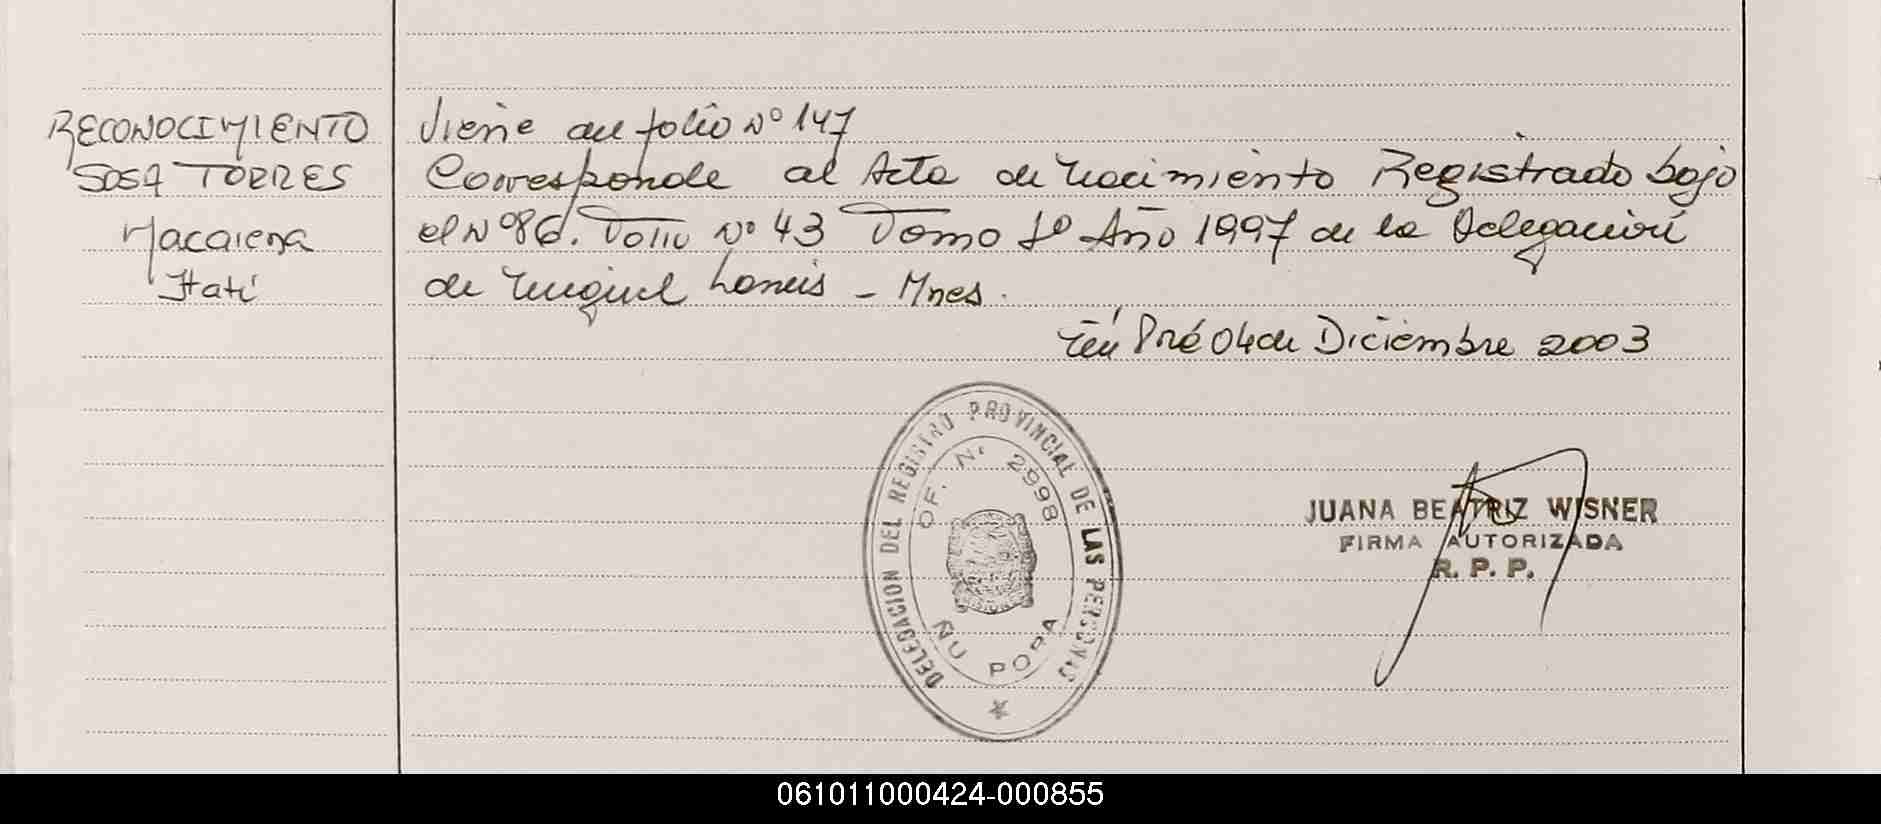 RECONOCIMIENTO
SOSA TORRES
Macarena
Itatí
Viene del folio Nº 147
Corresponde al Acta de Nacimiento Registrado bajo
el Nº 86. Folio Nº 43 Tomo 1º Año 1997 de la Delegación
de Miguel Lanús - Mnes.
Ñu Porá 04 de Diciembre 2003
DELEGACION DEL REGISTRO PROVINCIAL DE LAS PERSONAS
OF. Nº 2998
ÑU PORA
JUANA BEATRIZ WISNER
FIRMA AUTORIZADA
R. P. P.
061011000424-000855